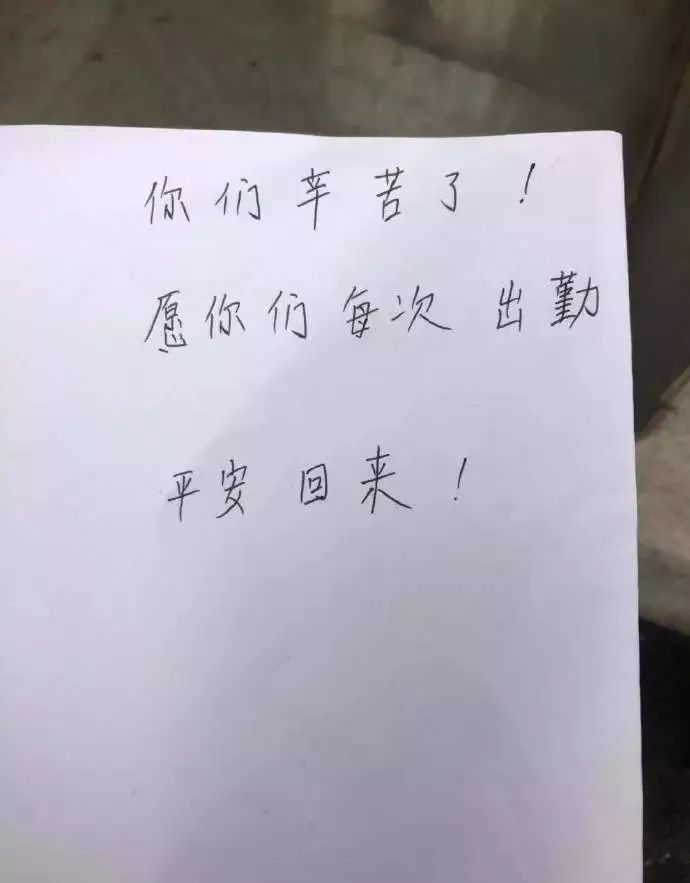 你们辛苦了！
愿你们每次出勤
平安回来！